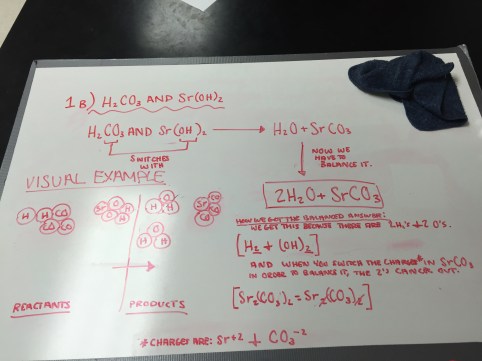 1B) H2CO3 AND Sr(OH)2
H2CO3 AND Sr(OH)2 → H2O + SrCO3
SWITCHES WITH
NOW WE HAVE TO BALANCE IT.
VISUAL EXAMPLE
2H2O + SrCO3
H H CO CO CO
Sr CO CO CO
HOW WE GOT THE BALANCED ANSWER:
WE GET THIS BECAUSE THERE ARE 2 H2's + 2 O's.
[H2 + (OH)2]
AND WHEN YOU SWITCH THE CHARGES* IN SrCO3
IN ORDER TO BALANCE IT, THE 2's CANCEL OUT.
[Sr2(CO3)2 = Sr2(CO3)2]
REACTANTS
PRODUCTS
* CHARGES ARE: Sr+2 + CO3-2